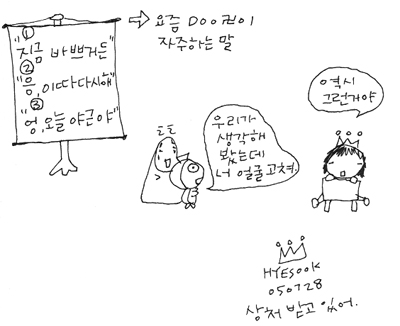 ①
"지금 바쁘거든"
②
"응, 이따 다시해"
③
"엉, 오늘 야근야"
요즘 DOO군이
자주하는 말
토토
우리가
생각해
봤는데
너 얼굴 고쳐.
역시
그런거야
HYESOOK
050728
상처 받고 있어.